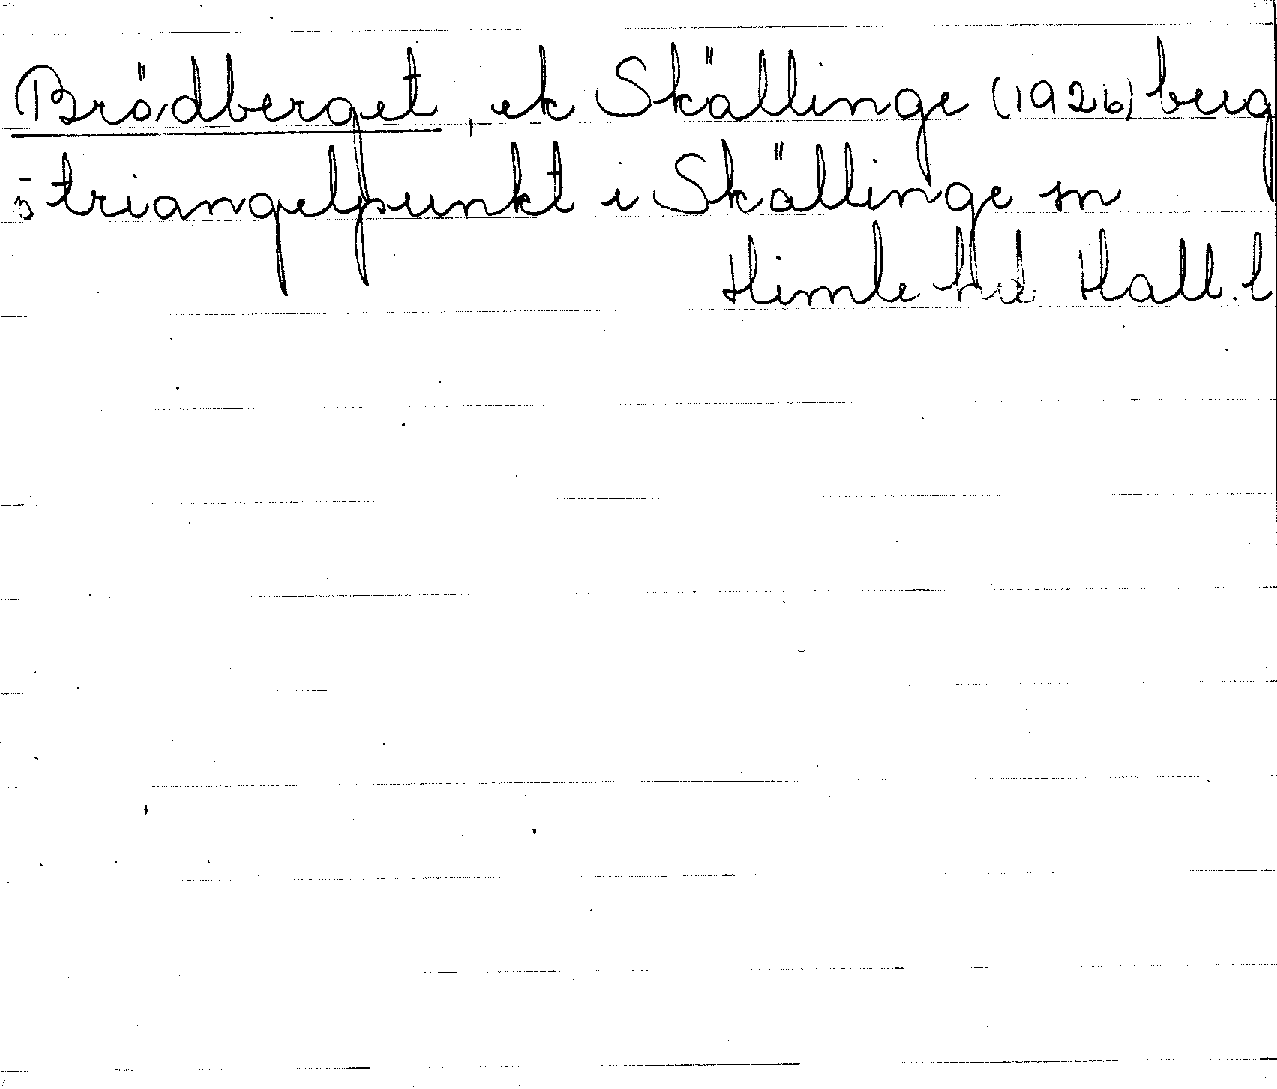 Brödberget, ek Skällinge (1926) berg
o triangelpunkt i Skällinge sn
Himle hd Hall. l